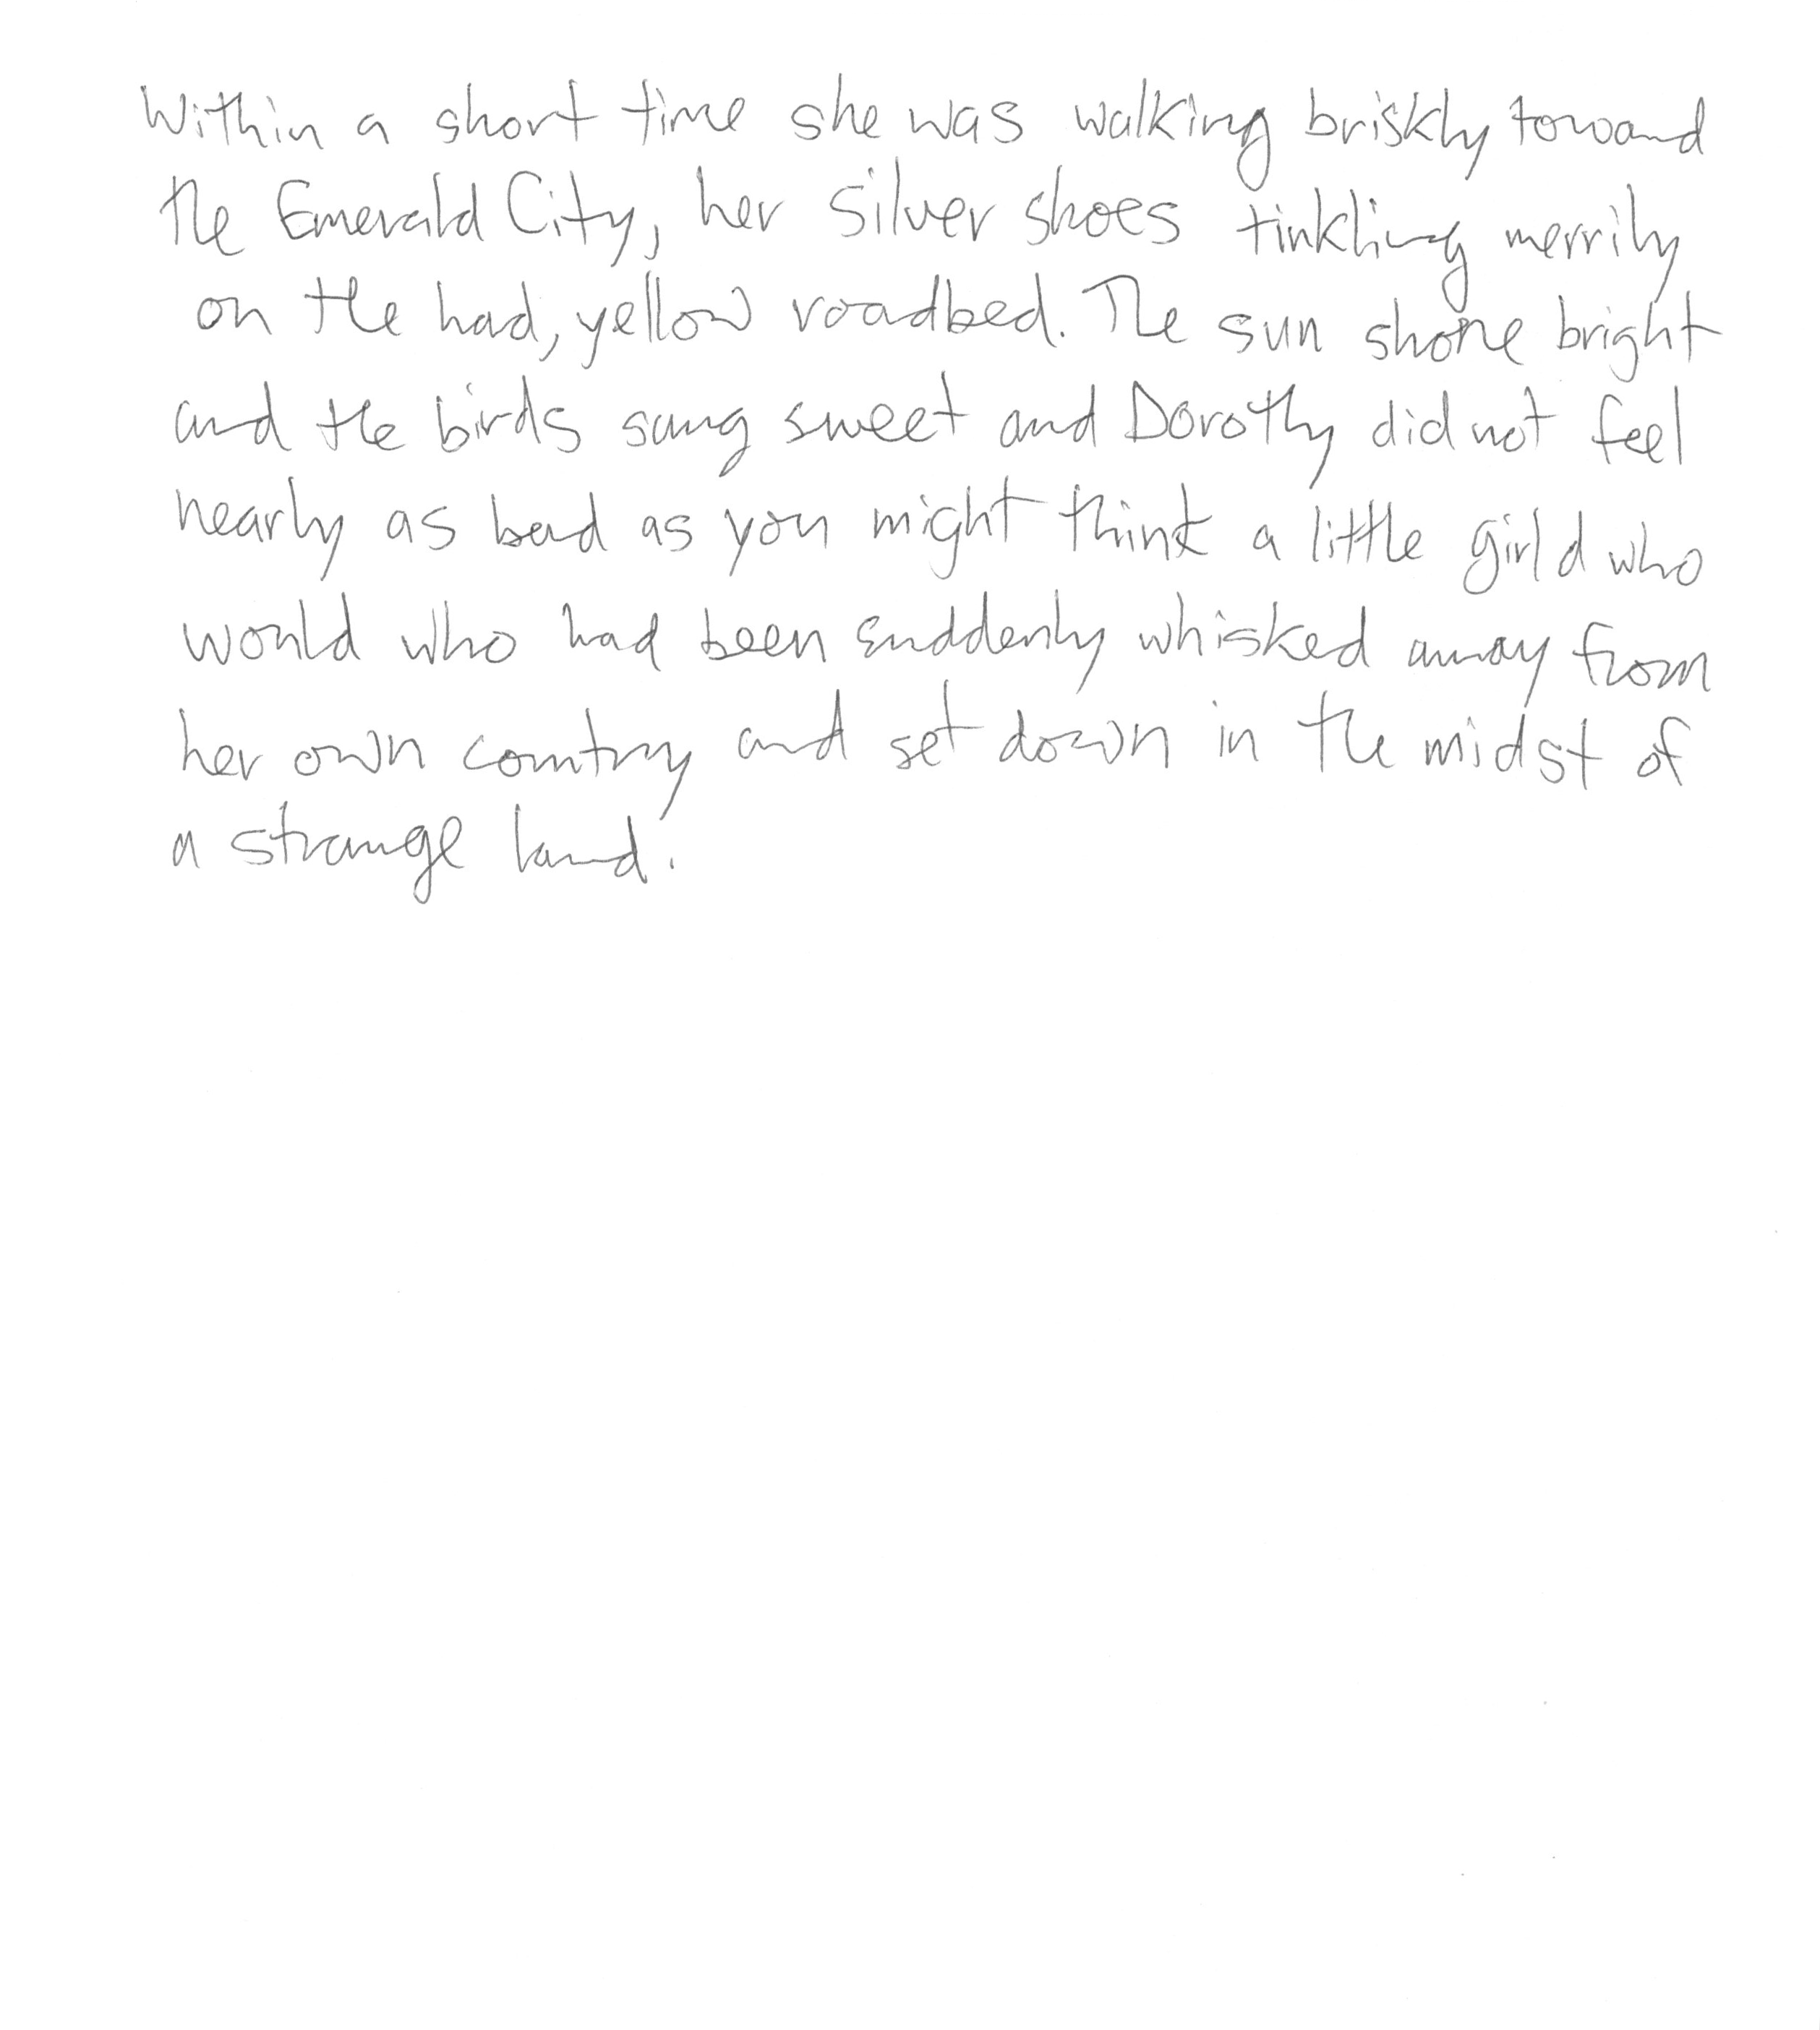 Within a short time she was walking briskly toward
the Emerald City, her silver shoes tinkling merrily
on the had, yellow roadbed. The sun shone bright
and the birds sang sweet and Dorothy did not feel
nearly as bad as you might think a little girld who
would who had been suddenly whisked away from
her own country and set down in the midst of
a strange land.